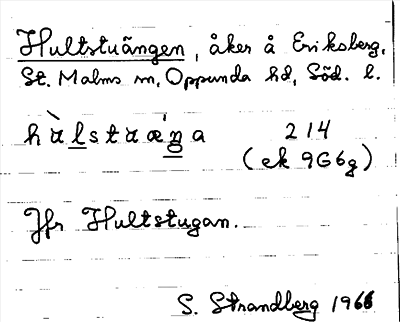 Hultstuängen, åker å Eriksberg,
St. Malms sn, Oppunda hd, Söd. l.
214
(ek 9G6g)
Jfr Hultstugan.
S. Strandberg 1966